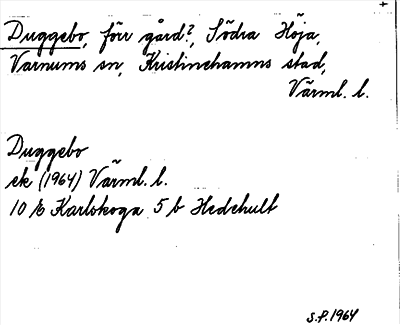 Duggebo, förr gård?, Södra Höja,
Varnums sn, Kristinehamns stad,
Värml. l.
Duggebo
ek (1964) Värml. l.
10 E Karlskoga 5 b Hedehult
S.P. 1964